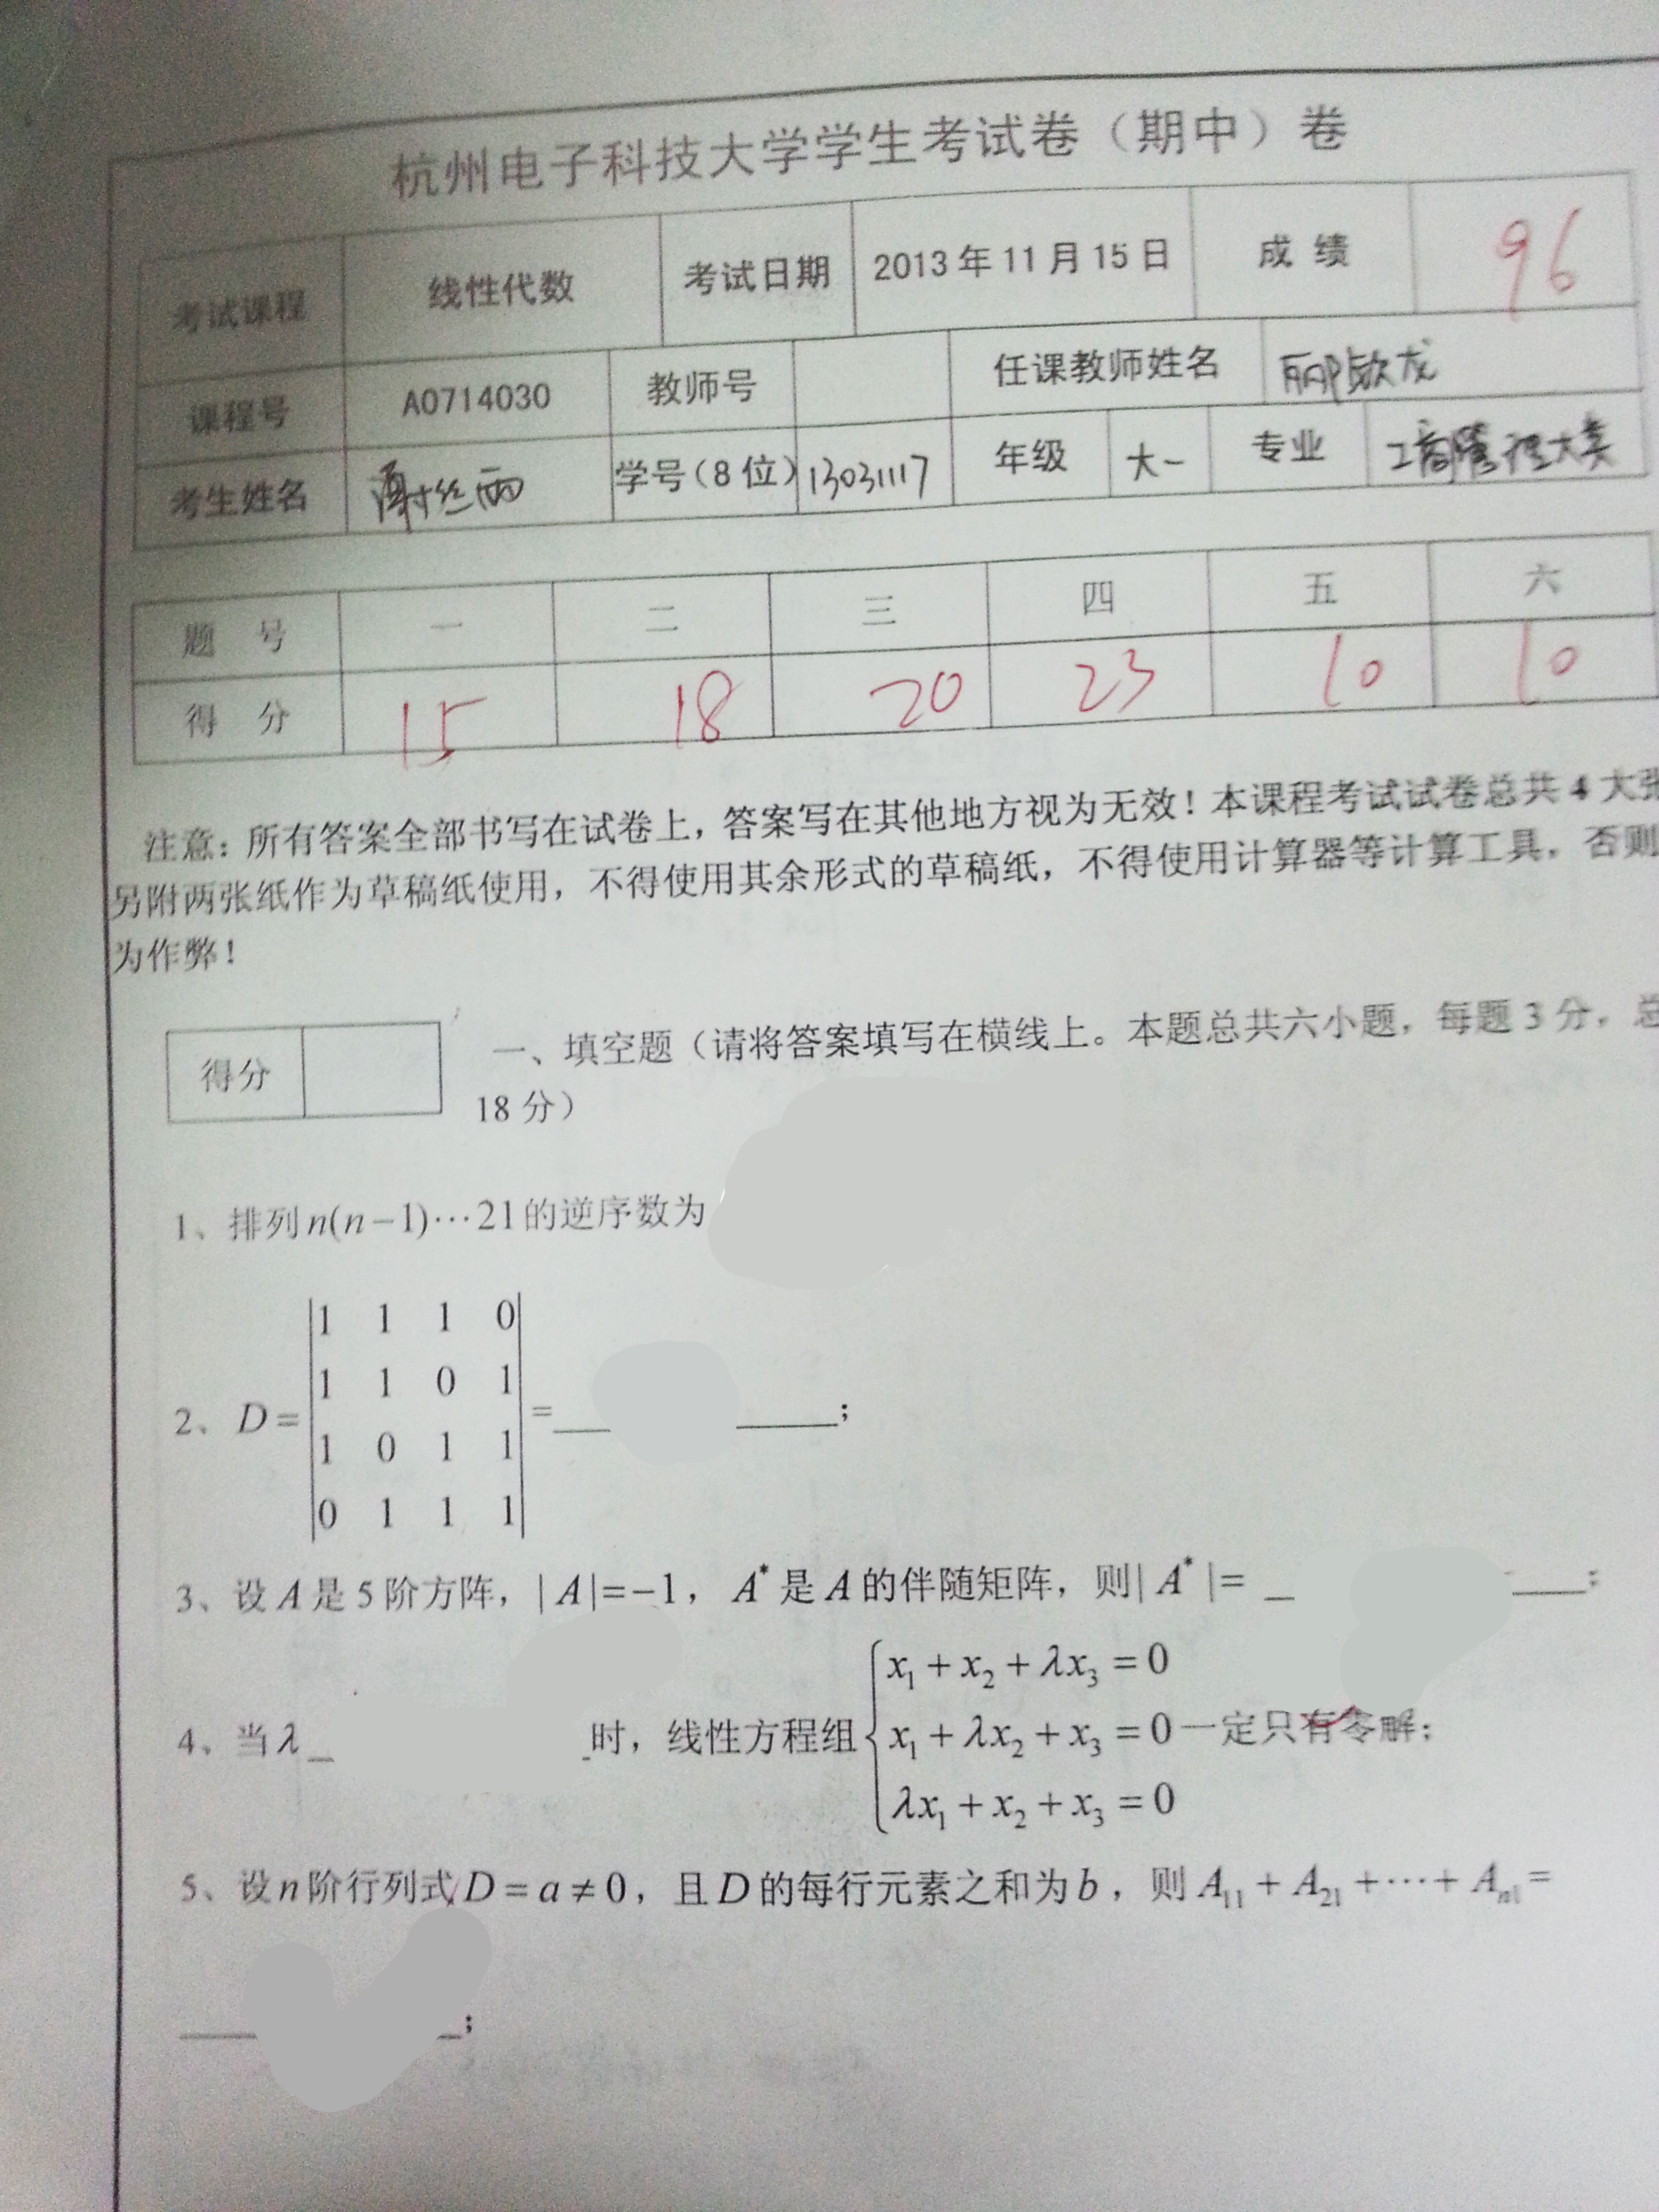 杭州电子科技大学学生考试卷（期中）卷
考试课程 线性代数 考试日期 2013年11月15日 成绩 96
课程号 A0714030 教师号 任课教师姓名 郦钦龙
考生姓名 谢丝雨 学号（8位） 13031117 年级 大一 专业 工商管理大类
题 号 一 二 三 四 五 六
得 分 15 18 20 23 10 10
注意：所有答案全部书写在试卷上，答案写在其他地方视为无效！本课程考试试卷总共4大张
另附两张纸作为草稿纸使用，不得使用其余形式的草稿纸，不得使用计算器等计算工具，否则
为作弊！
得分
一、填空题（请将答案填写在横线上。本题总共六小题，每题3分，总
18分）
1、排列n(n−1)⋯21的逆序数为
2、D=|1 1 1 0
1 1 0 1
1 0 1 1
0 1 1 1|=______;
3、设A是5阶方阵，|A|=−1，A*是A的伴随矩阵，则|A*|=______;
4、当λ______时，线性方程组{x₁+x₂+λx₃=0
x₁+λx₂+x₃=0一定只有零解;
λx₁+x₂+x₃=0
5、设n阶行列式D=a≠0，且D的每行元素之和为b，则A₁₁+A₂₁+⋯+Aₙ₁=
______;